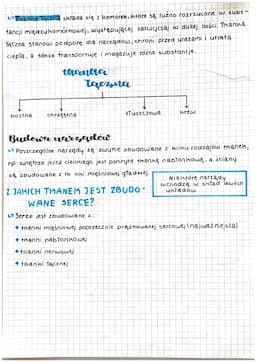 składa się z komórek, które są luźno rozrzucone w subs-
tancji międzykomórkowej, występującej zazwyczaj w dużej ilości. Tkanka
łączna stanowi podporę dla narządów, chroni przed urazami i utratą
ciepła, a także transportuje i magazynuje różne substancje.
tkanka
łączna
kostna chrzęstna tłuszczowa krew
Budowa narządów
Poszczególne narządy są zwykle zbudowane z kilku rodzajów tkanek,
np. wnętrze jelita cienkiego jest pokryte tkanką nabłonkową, a ściany
są zbudowane z tk. nki mięśniowej gładkiej.
Niektóre narządy
wchodzą w skład dwóch
układów.
Z JAKICH TKANEK JEST ZBUDO-
WANE SERCE?
Serce jest zbudowane z:
• tkanki mięśniowej poprzecznie prążkowanej sercowej (najważniejsza)
• tkanki nabłonkowej
• tkanki nerwowej
• tkanki łącznej